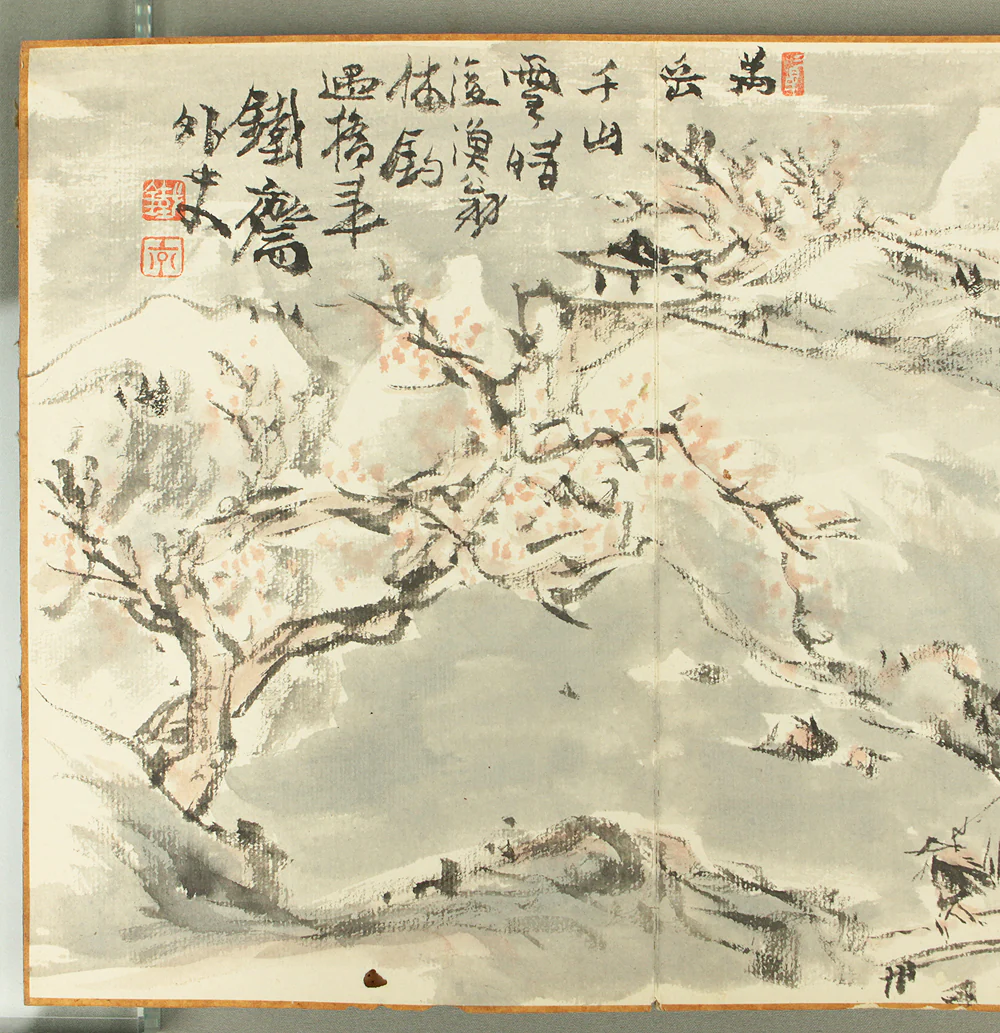 萬
岳
千山
雪晴
後漁翁
釣
過橋来
鐵齋
外史
鐵